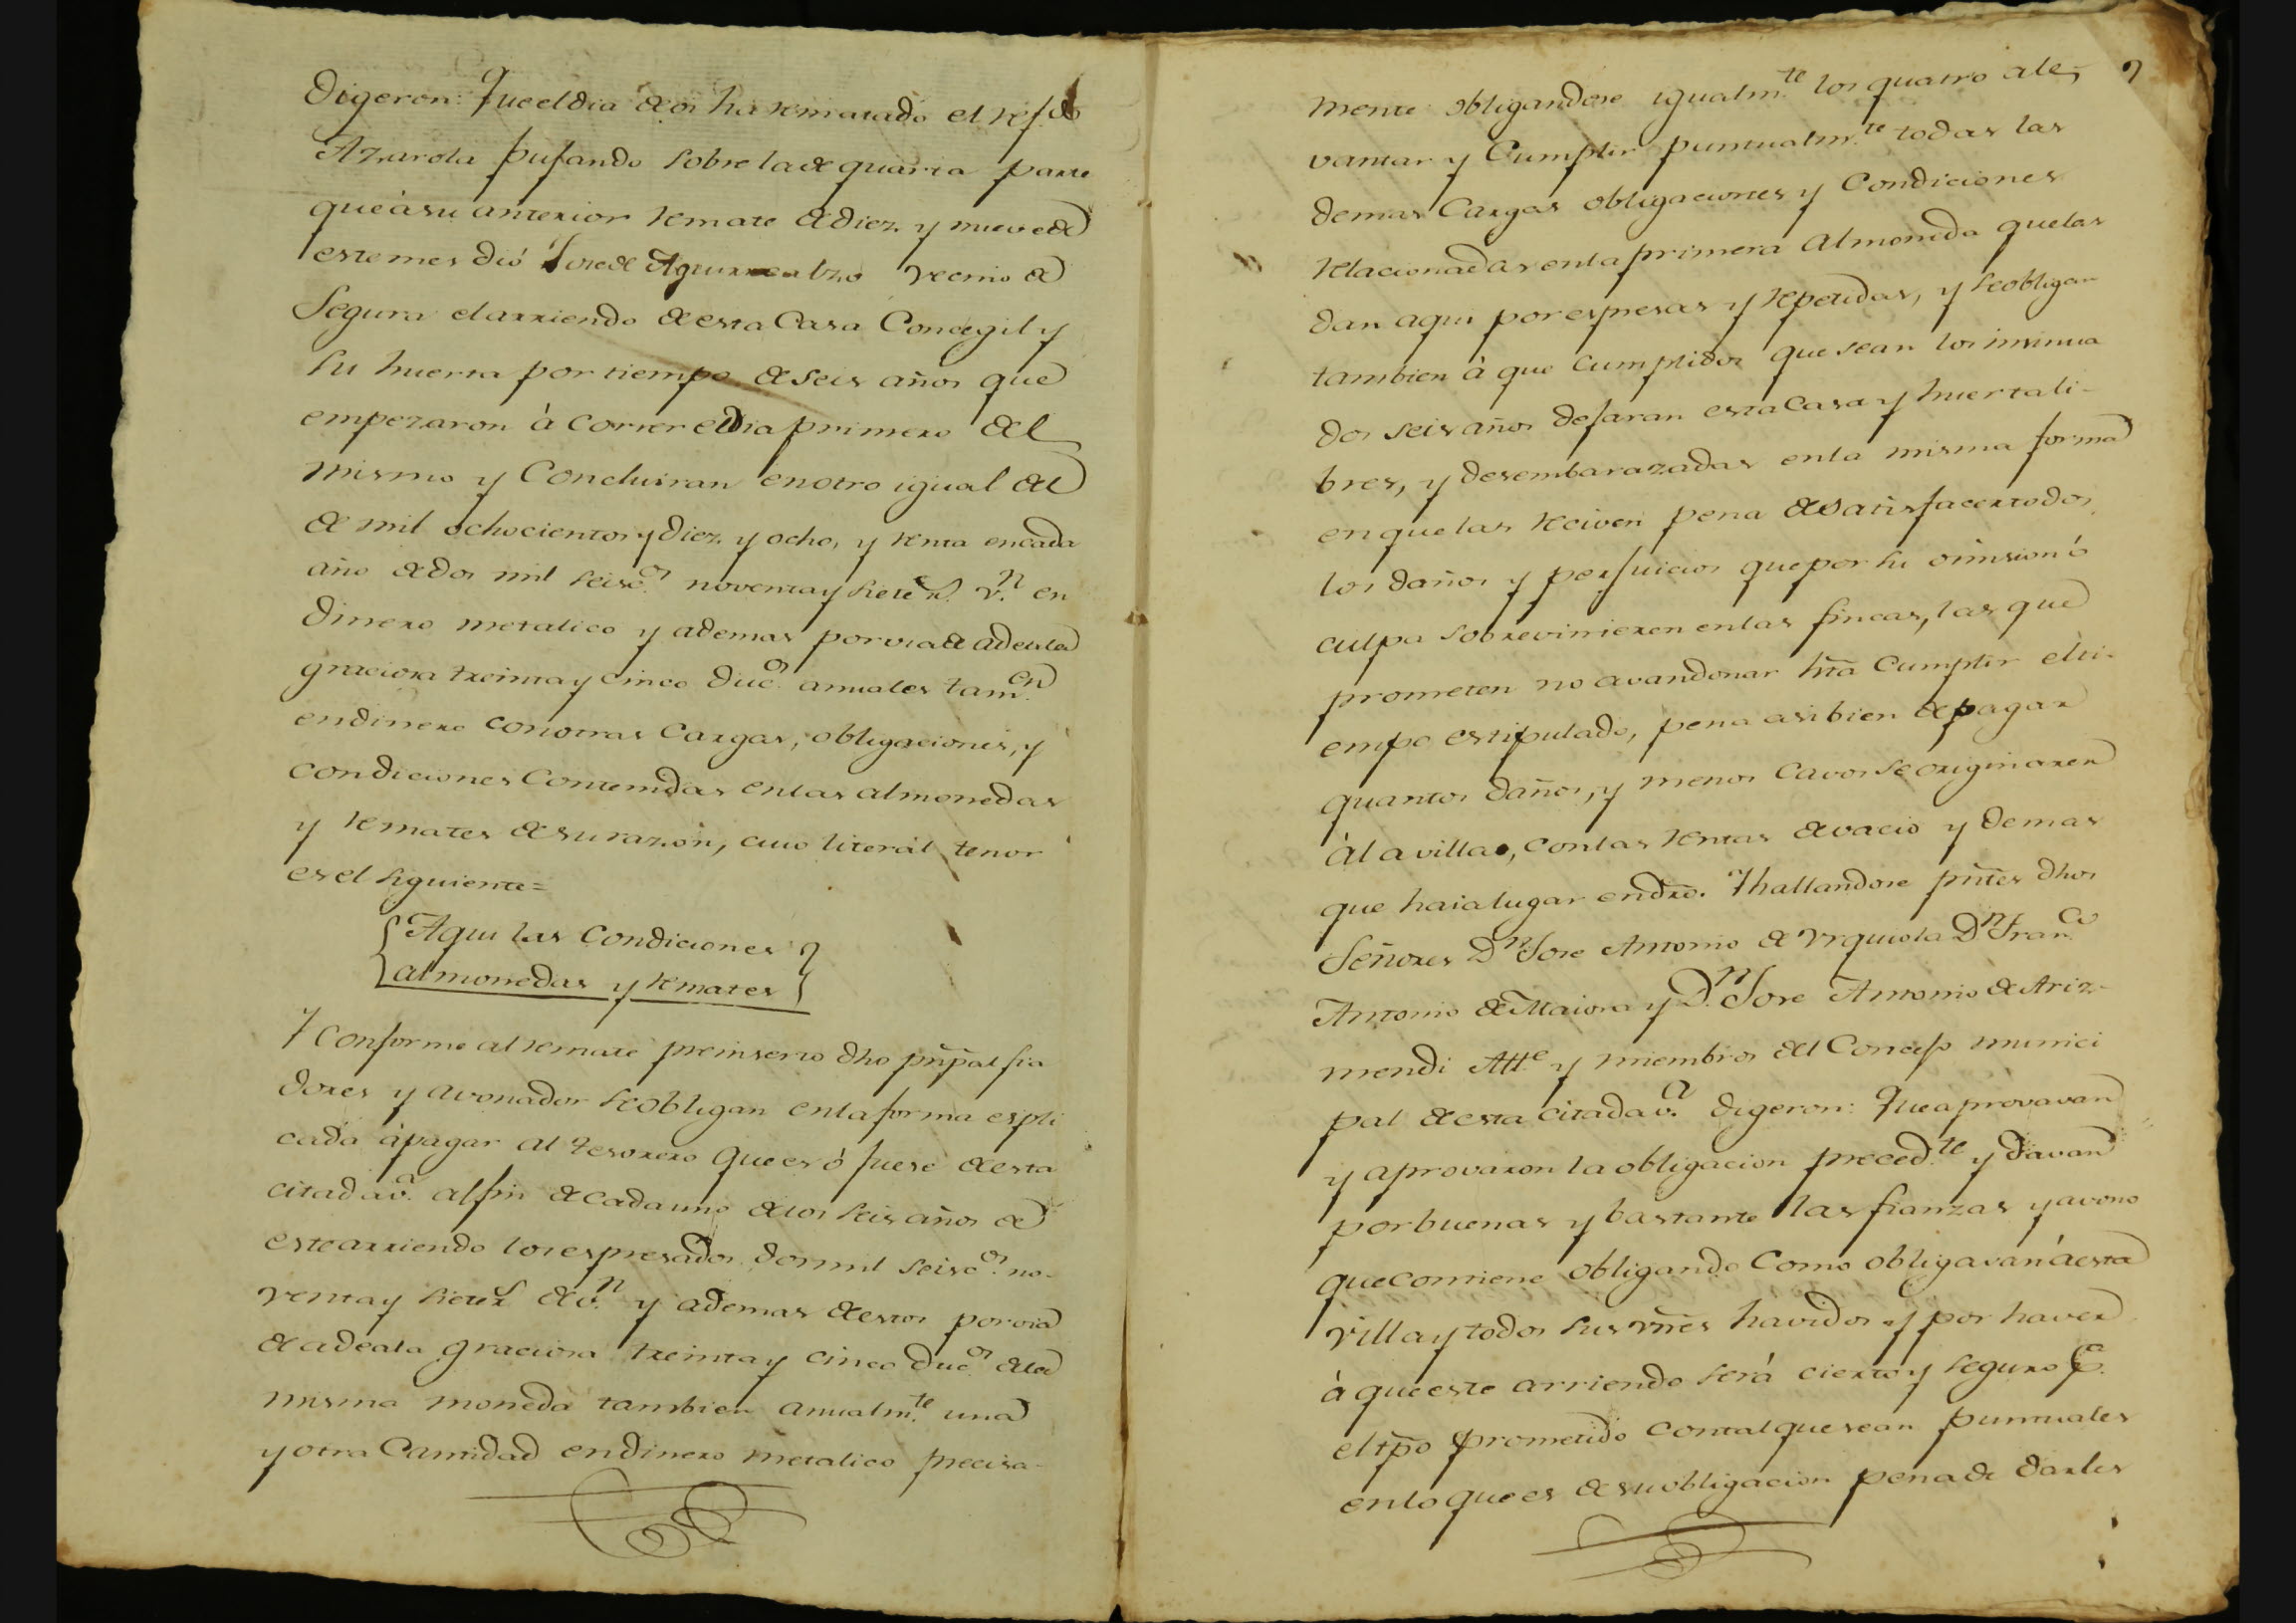 Digeron: Que el dia de oi ha rematado el refdo
Azurola pujando sobre la de quarta parte
que à su anterior remate de diez y nueve de
este mes dió Jose de Aguirrezabal vecino de
Segura el arriendo de esta Casa Concegil y
su huerta por tiempo de seis años que
empezaron à correr el dia primero del
mismo y Concluiran en otro igual del
de mil ochocientos y diez y ocho, y renta en cada
año de dos mil seiscos noventa y siete rs. vn en
dinero metalico y ademas por via de adeala
graciosa treinta y cinco ducos anuales tamen
en dinero con otras Cargas, obligaciones, y
condiciones Contenidas en las almonedas
y remates de su razon, cuio literál tenor
es el siguiente=
Aqui las Condiciones
almonedas y remates
Y Conforme al remate preinserto dho pñpal fia
dores y avonador se obligan en la forma espli
cada à pagar al tesorero que es ó fuese de esta
citada va. al fin de cada uno de los seis años de
este arriendo los espresados dos mil seiscos no-
venta y siete rs de vn y ademas de estos por via
de adeala graciosa treinta y cinco ducos de la
misma moneda tambien anualmte una
y otra Cantidad en dinero metalico precisa-
mente obligandose igualmte los quatro a le-
vantar y Cumplir puntualmte todas las
demas Cargas obligaciones y Condiciones
relacionadas en la primera almoneda que las
dan aqui por espresas y repetidas, y se obligan
tambien à que cumplidos que sean los insinua
dos seis años dejaran esta Casa y huerta li-
bres, y desembarazadas en la misma forma
en que las reciven pena de satisfacer todos
los daños y perjuicios que por su omision ó
culpa sobrevinieren en las fincas, las que
prometen no avandonar hta cumplir el ti-
empo estipulado, pena asi bien de pagar
quantos daños, y menos cavos se originaren
à la villa, con las rentas de vacio y demas
que haia lugar en dro. Y hallandose pñtes dhos
Señores Dn Jose Antonio de Urquiola Dn Franco
Antonio de Maiora y Dn Jose Antonio de Ariz-
mendi Alle y miembros del Concejo munici
pal de esta citada va. digeron: Que aprovavan
y aprovaron la obligacion precedte y davan
por buenas y bastante las fianzas y avono
que contiene obligando Como obligavan à esta
villa y todos sus vñes havidos y por haver
à que este arriendo será cierto y seguro
el tpo prometido con tal que sean puntuales
en lo que es de su obligacion pena de darles